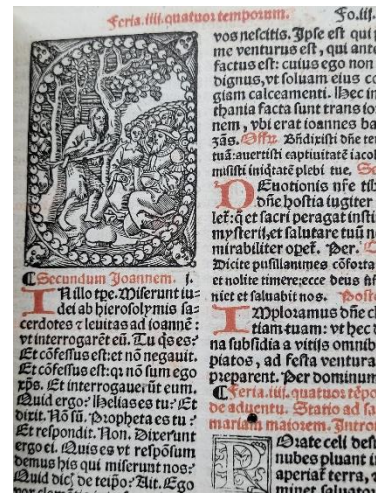 Feria.iiii.quatuor temporum.
Fo.iij.
¶Secundum Joannem. j.
IN illo tpe. Miserunt iu-
dei ab hierosolymis sa-
cerdotes ⁊ leuitas ad joannē :
vt interrogarēt eū. Tu q̇s es?
Et cōfessus est: et nō negauit.
Et cōfessus est: qꝛ nō sum ego
xp̄s. Et interrogauerūt eum.
Quid ergo? Helias es tu? Et
dixit. Nō sū. Propheta es tu ?
Et respondit. Non. Dixerunt
ergo ei. Quis es vt respōsum
demus his qui miserunt nos?
Quid dicꝭ de teipo? Ait. Ego
vos nescitis. Ipse est qui
me venturus est, qui ante
factus est: cuius ego non
dignus, vt soluam eius co
giam calceamenti. Hec in
thania facta sunt trans io
nem, vbi erat ioannes ba
zās. Offꝫ. Bn̄dixisti dn̄e ter
tuā: auertisti captiuitatē iacob
misisti iniq̇tatē plebi tue. Se
DEuotionis nr̄e tib
dn̄e hostia iugiter
let᷑: q̇ et sacri peragat insti
mysterij, et salutare tuū n
mirabiliter opet᷑. Per.
Dicite pusillanimes cōforta
et nolite timere: ecce deus nr̄
niet et saluabit nos. Postc
IMploramus dn̄e cl
tiam tuam: vt hec d
na subsidia a vitijs omnib
piatos, ad festa ventura
preparent. Per dominum
¶Feria.iiii.quatuor tēpo
de aduentu. Statio ad sa
mariam maiorem. Introi
ROrate celi desu
nubes pluant iu
aperiat᷑ terra, ⁊